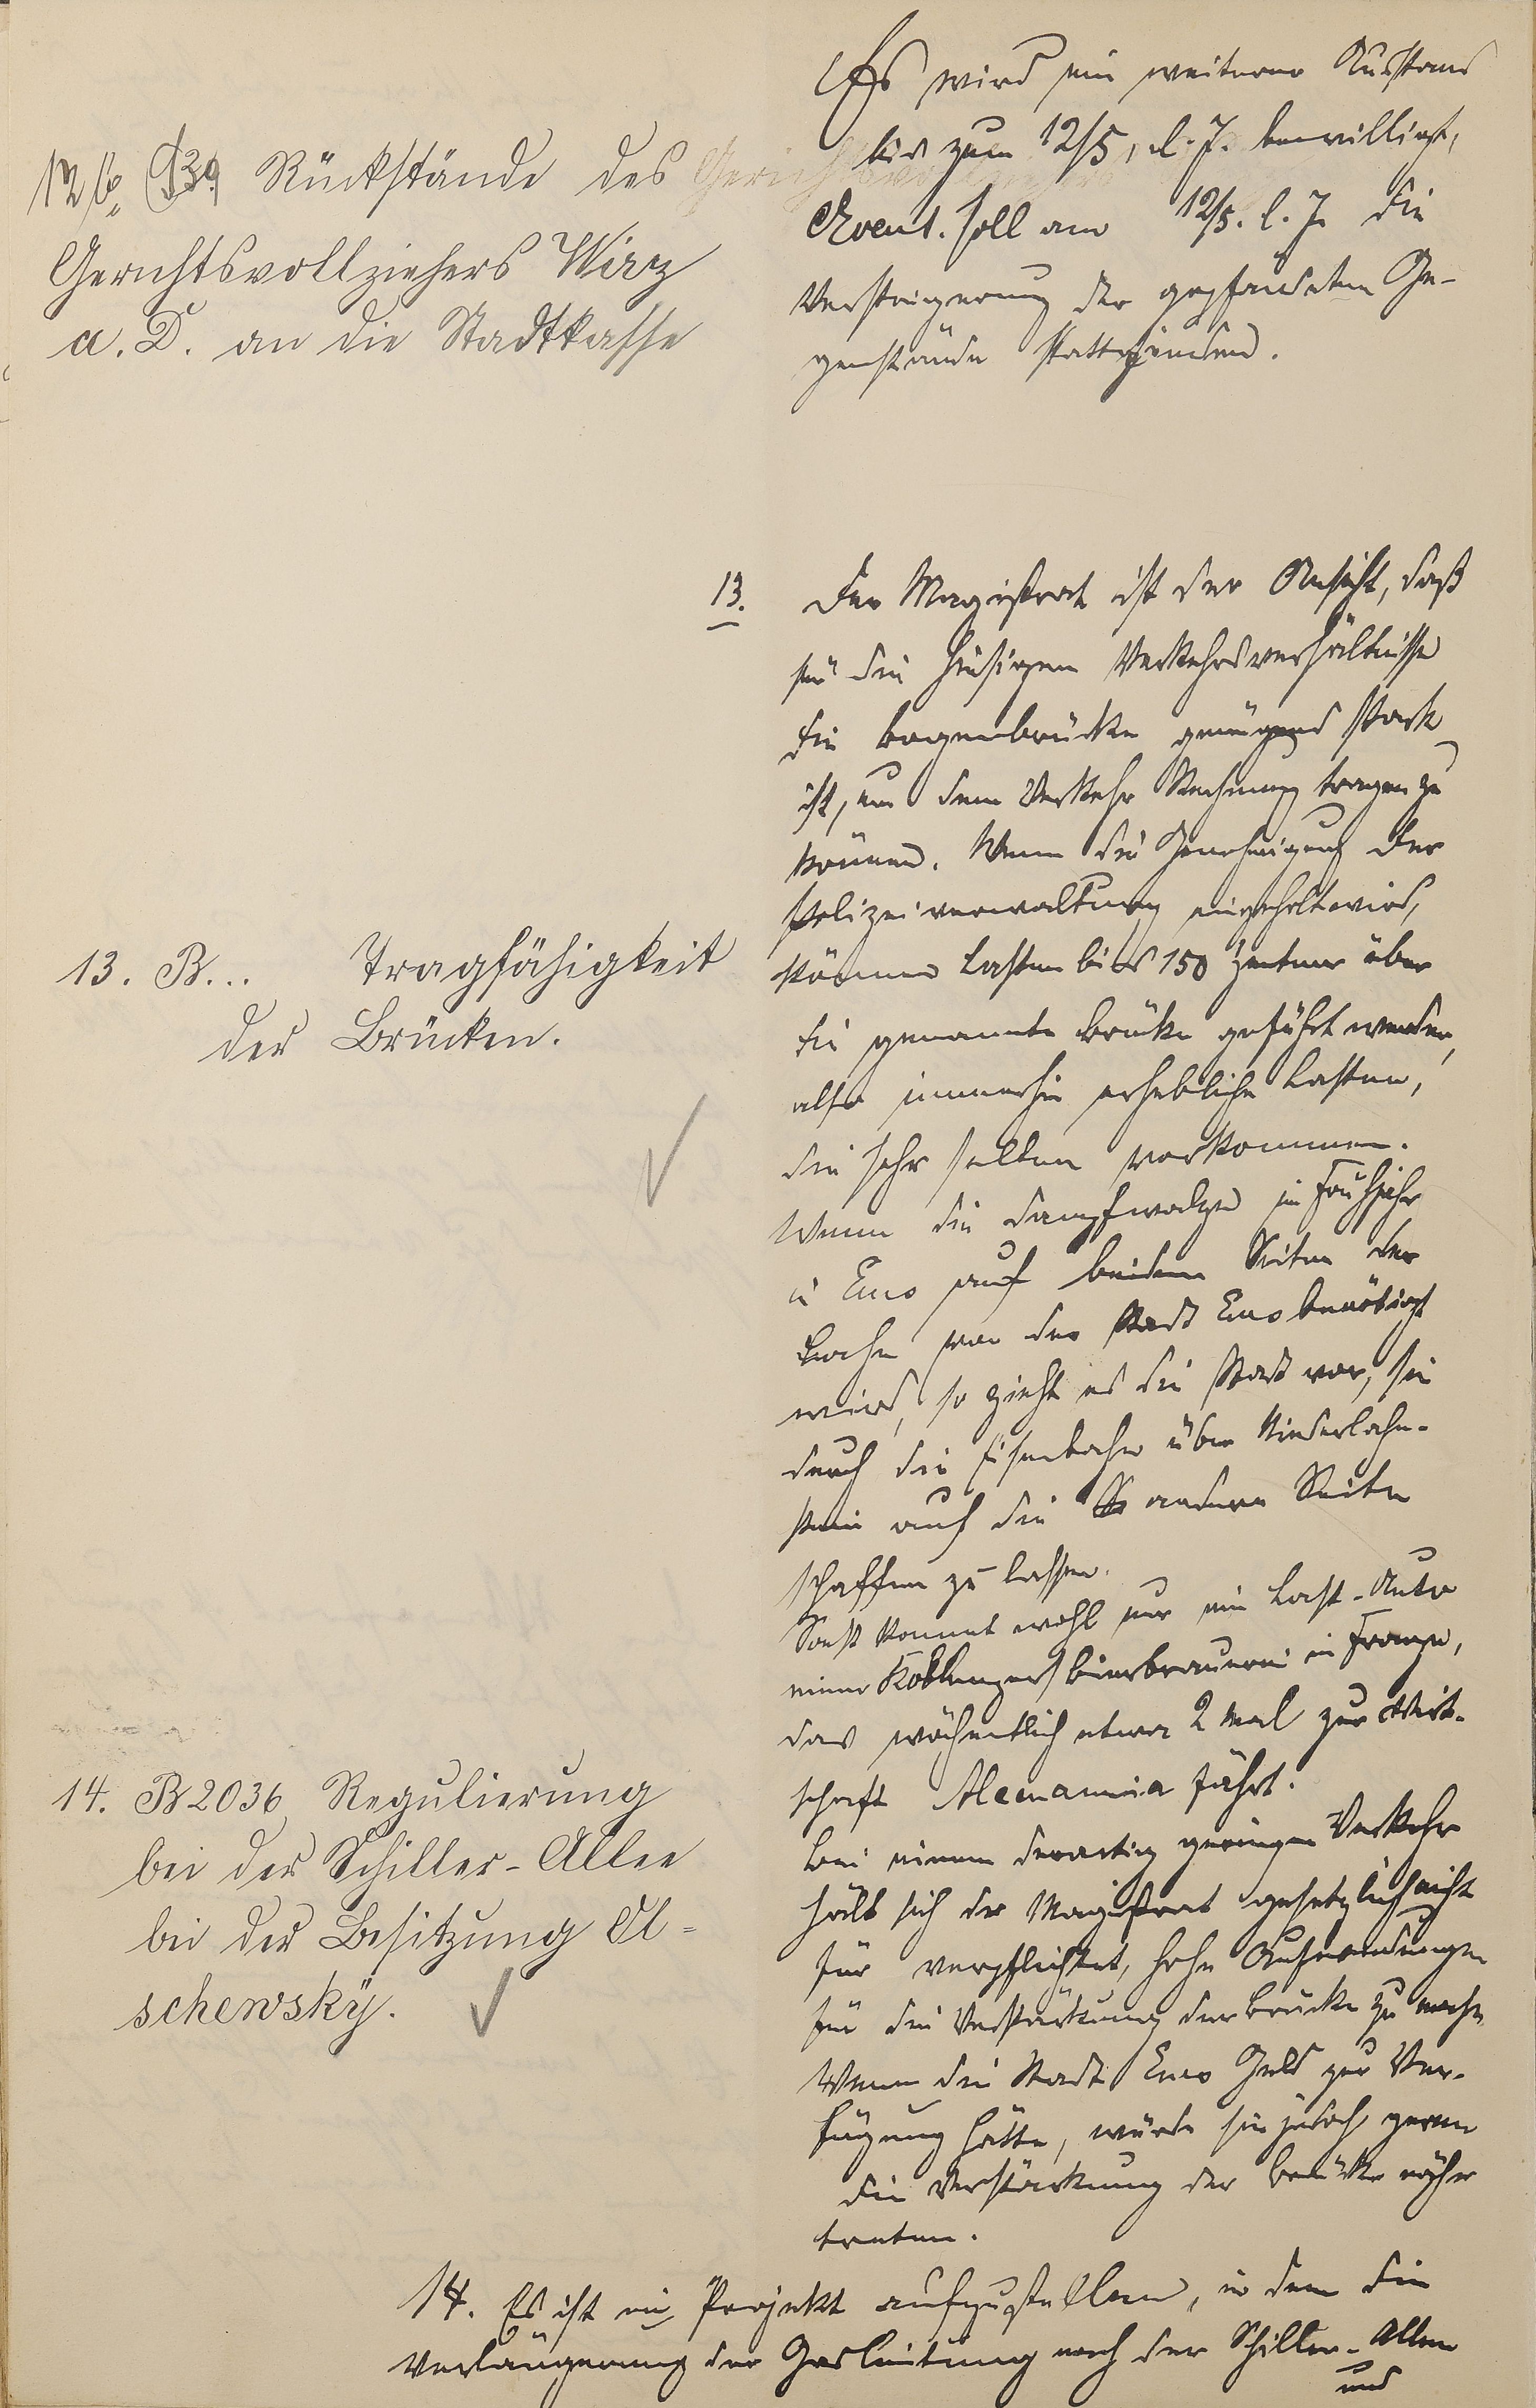 12b. (§39) Rückstände des
Gerichtsvollziehers Wirz
a. D. an die Stadtkasse
Es wird ein weiterer Ausstand
bis zum 12/5, l. J. bewilligt,
Event. soll am 12/5. l. J. die
Versteigerung der gepfändeten Ge-
genstände stattfinden.
13. B... Tragfähigkeit
der Brücken.
13. Der Magistrat ist der Ansicht, daß
für die hiesigen Verkehrsverhältnisse
die Bogenbrücke genügend stark
ist, um dem Verkehr Rechnung tragen zu
können. Wenn die Genehmigung der
Polizeiverwaltung eingeholt wird,
können Lasten bis 150 Zentner über
die genannte Brücke geführt werden,
also immerhin erhebliche Lasten,
die sehr selten vorkommen.
Wenn die Dampfwalze im Frühjahr
in Ems auf beiden Seiten der
Lahn von der Stadt Ems benötigt
wird, so zieht es die Stadt vor, sie
durch die Eisenbahn über Niederlahn-
stein auf die andere Seite
schaffen zu lassen.
Sonst kommt wohl nur ein Last-Auto
einer Koblenzer Bierbrauerei in Frage,
das wöchentlich etwa 2 Mal zur Wirt-
schaft Alemannia fährt.
Bei einem derartig geringen Verkehr
hält sich der Magistrat gesetzlich nicht
für verpflichtet, hohe Aufwendungen
für die Verstärkung der Brücke zu machen.
Wenn die Stadt Ems Geld zur Ver-
fügung hätte, würde sie jedoch gerne
die Verstärkung der Brücke näher
treten.
14. B 2036 Regulierung
bei der Schiller-Allee
bei der Besitzung Ol=
schewsky.
14. Es ist ein Projekt aufzustellen, in dem die
Verlängerung der Gasleitung nach der Schiller-Allee
und